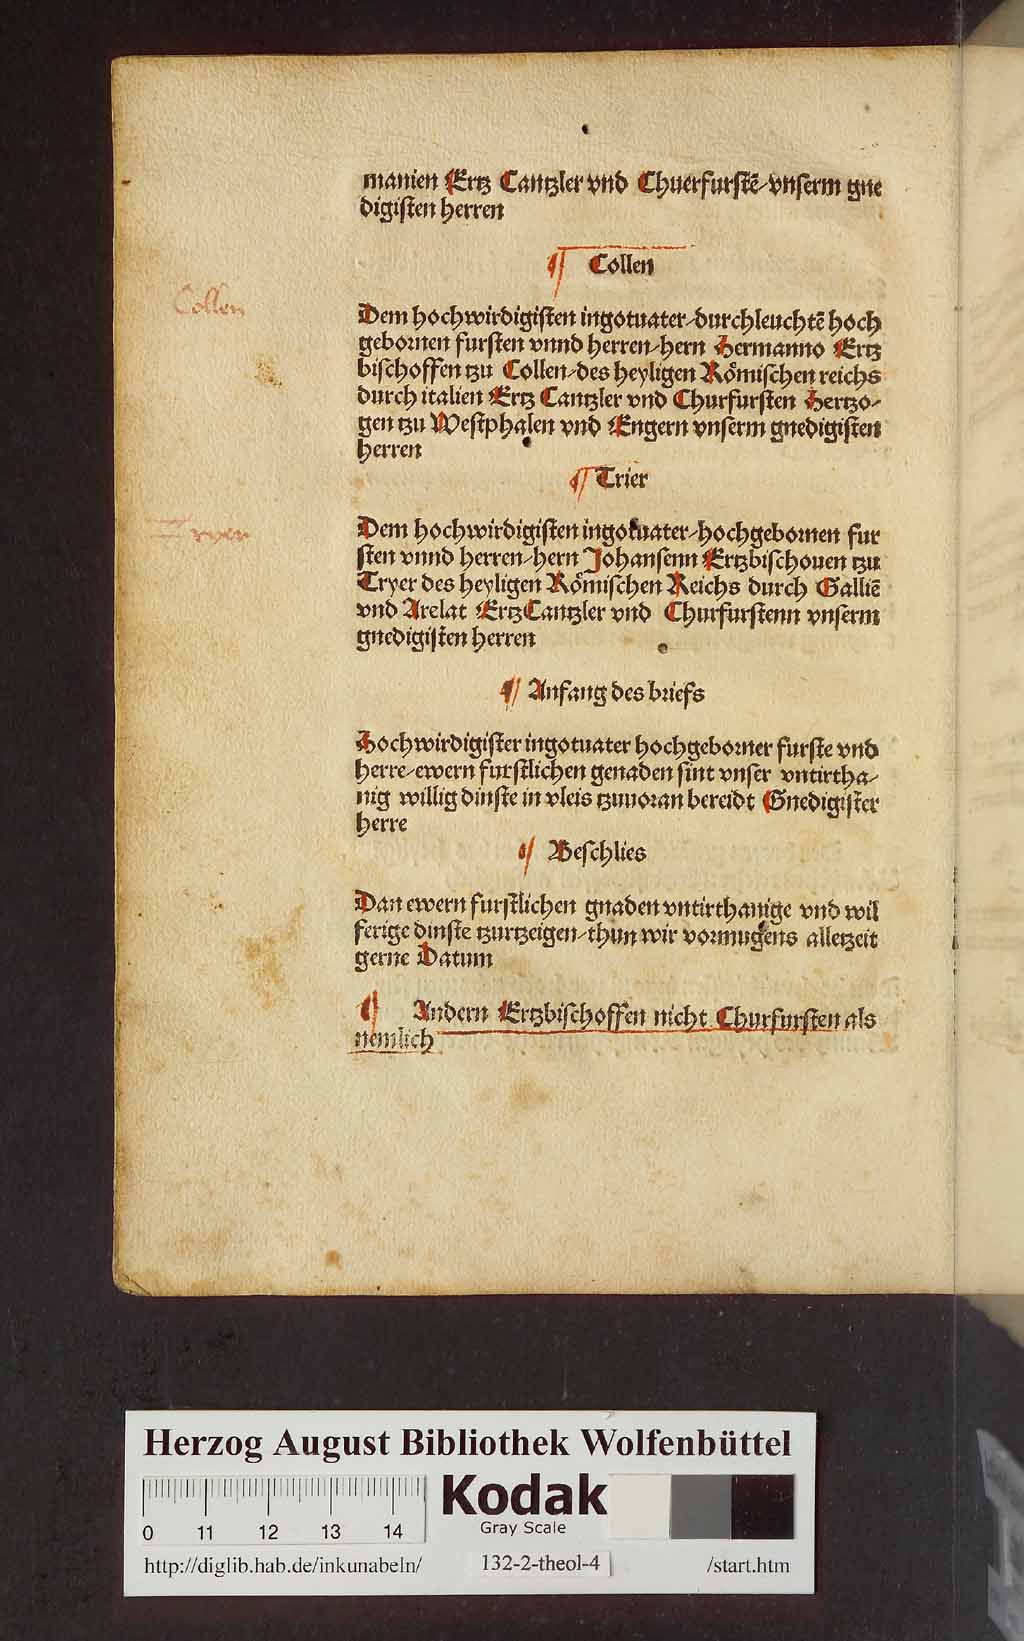 manien Ertz Cantzler vnd Chuerfurstē/vnserm gne
digisten herren
¶ Collen
Collen
Dem hochwirdigisten ingotuater/durchleuchtē hoch
gebornen fursten vnnd herren/hern Hermanno Ertz
bischoffen tzu Collen/des heyligen Römischen reichs
durch italien Ertz Cantzler vnd Churfursten Hertzo/
gen tzu Westphalen vnd Engern vnserm gnedigisten
herren
¶ Trier
Dem hochwirdigisten ingotuater/hochgebornen fur
sten vnnd herren/hern Johansenn Ertzbischouen tzu
Tryer des heyligen Römischen Reichs durch Galliē
vnd Arelat ErtzCantzler vnd Churfurstenn vnserm
gnedigisten herren
¶ Anfang des briefs
Hochwirdigister ingotuater hochgeborner furste vnd
herre/ewern furstlichen genaden sint vnser vntirtha/
nig willig dinste in vleis tzuuoran bereidt Gnedigister
herre
¶ Beschlies
Dan ewern furstlichen gnaden vntirthanige vnd wil
ferige dinste tzurtzeigen/thun wir vormugens alletzeit
gerne Datum
¶ Andern Ertzbischoffen nicht Churfursten als
nemlich
Herzog August Bibliothek Wolfenbüttel
Kodak
Gray Scale
0 11 12 13 14
http://diglib.hab.de/inkunabeln/ 132-2-theol-4 /start.htm